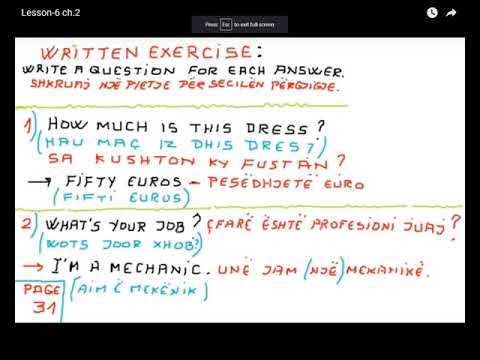 Lesson-6 ch.2
Press Esc to exit full screen
WRITTEN EXERCISE:
WRITE A QUESTION FOR EACH ANSWER.
SHKRUAJ NJË PIETJE PËR SECILËN PËRGJIGJE.
1) HOW MUCH IS THIS DRESS?
(HAU MAÇ IZ DHIS DRES?)
SA KUSHTON KY FUSTAN?
→ FIFTY EUROS - PESËDHJETË EURO
(FIFTI EURUS)
2) WHAT'S YOUR JOB? ÇFARË ËSHTË PROFESIONI JUAJ?
(WOTS JOOR XHOB?)
→ I'M A MECHANIC. UNË JAM (NJË) MEKANIKË.
PAGE 31 (AIM Ë MEKËNIK)